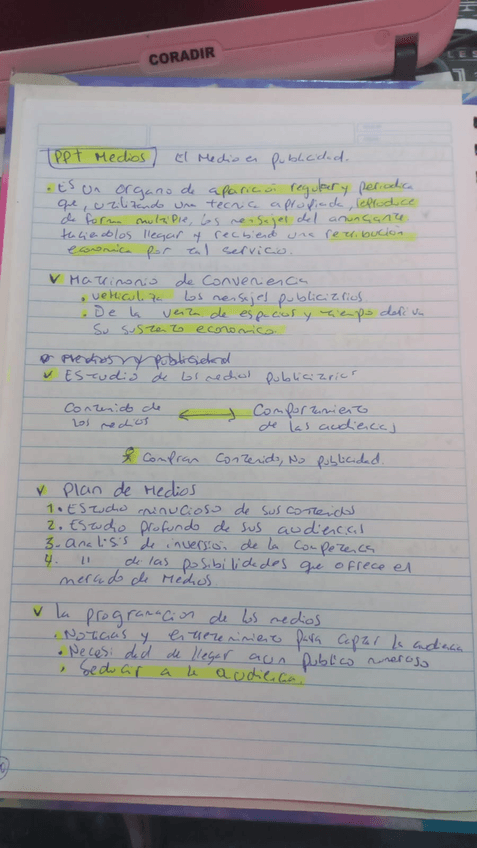 CORADIR
PPT Medios El Medio en publicidad.
• Es un organo de aparicion regular y periodica
que, utilizando una tecnica apropiada, reproduce
de forma multiple, los mensajes del anunciante
haciendolos llegar y recibiendo una retribución
economica por tal servicio.
✓ Matrimonio de Conveniencia
• vehiculiza los mensajes publicitarios
• De la venta de espacios y tiempo deriva
su sustento economico
Medios y publicidad
✓ Estudio de los medios publicitarios
Contenido de ⟷ Comportamiento
los medios de las audiencias
Compran Contenido, No publicidad.
✓ Plan de Medios
1. Estudio minucioso de sus contenidos
2. Estudio profundo de sus audiencias
3. analisis de inversion de la Competencia
4. 11 de las posibilidades que ofrece el
mercado de Medios.
✓ La programacion de los medios
• Noticias y entretenimiento para captar la audiencia
• Necesidad de llegar a un publico numeroso
• Seducir a la audiencia.